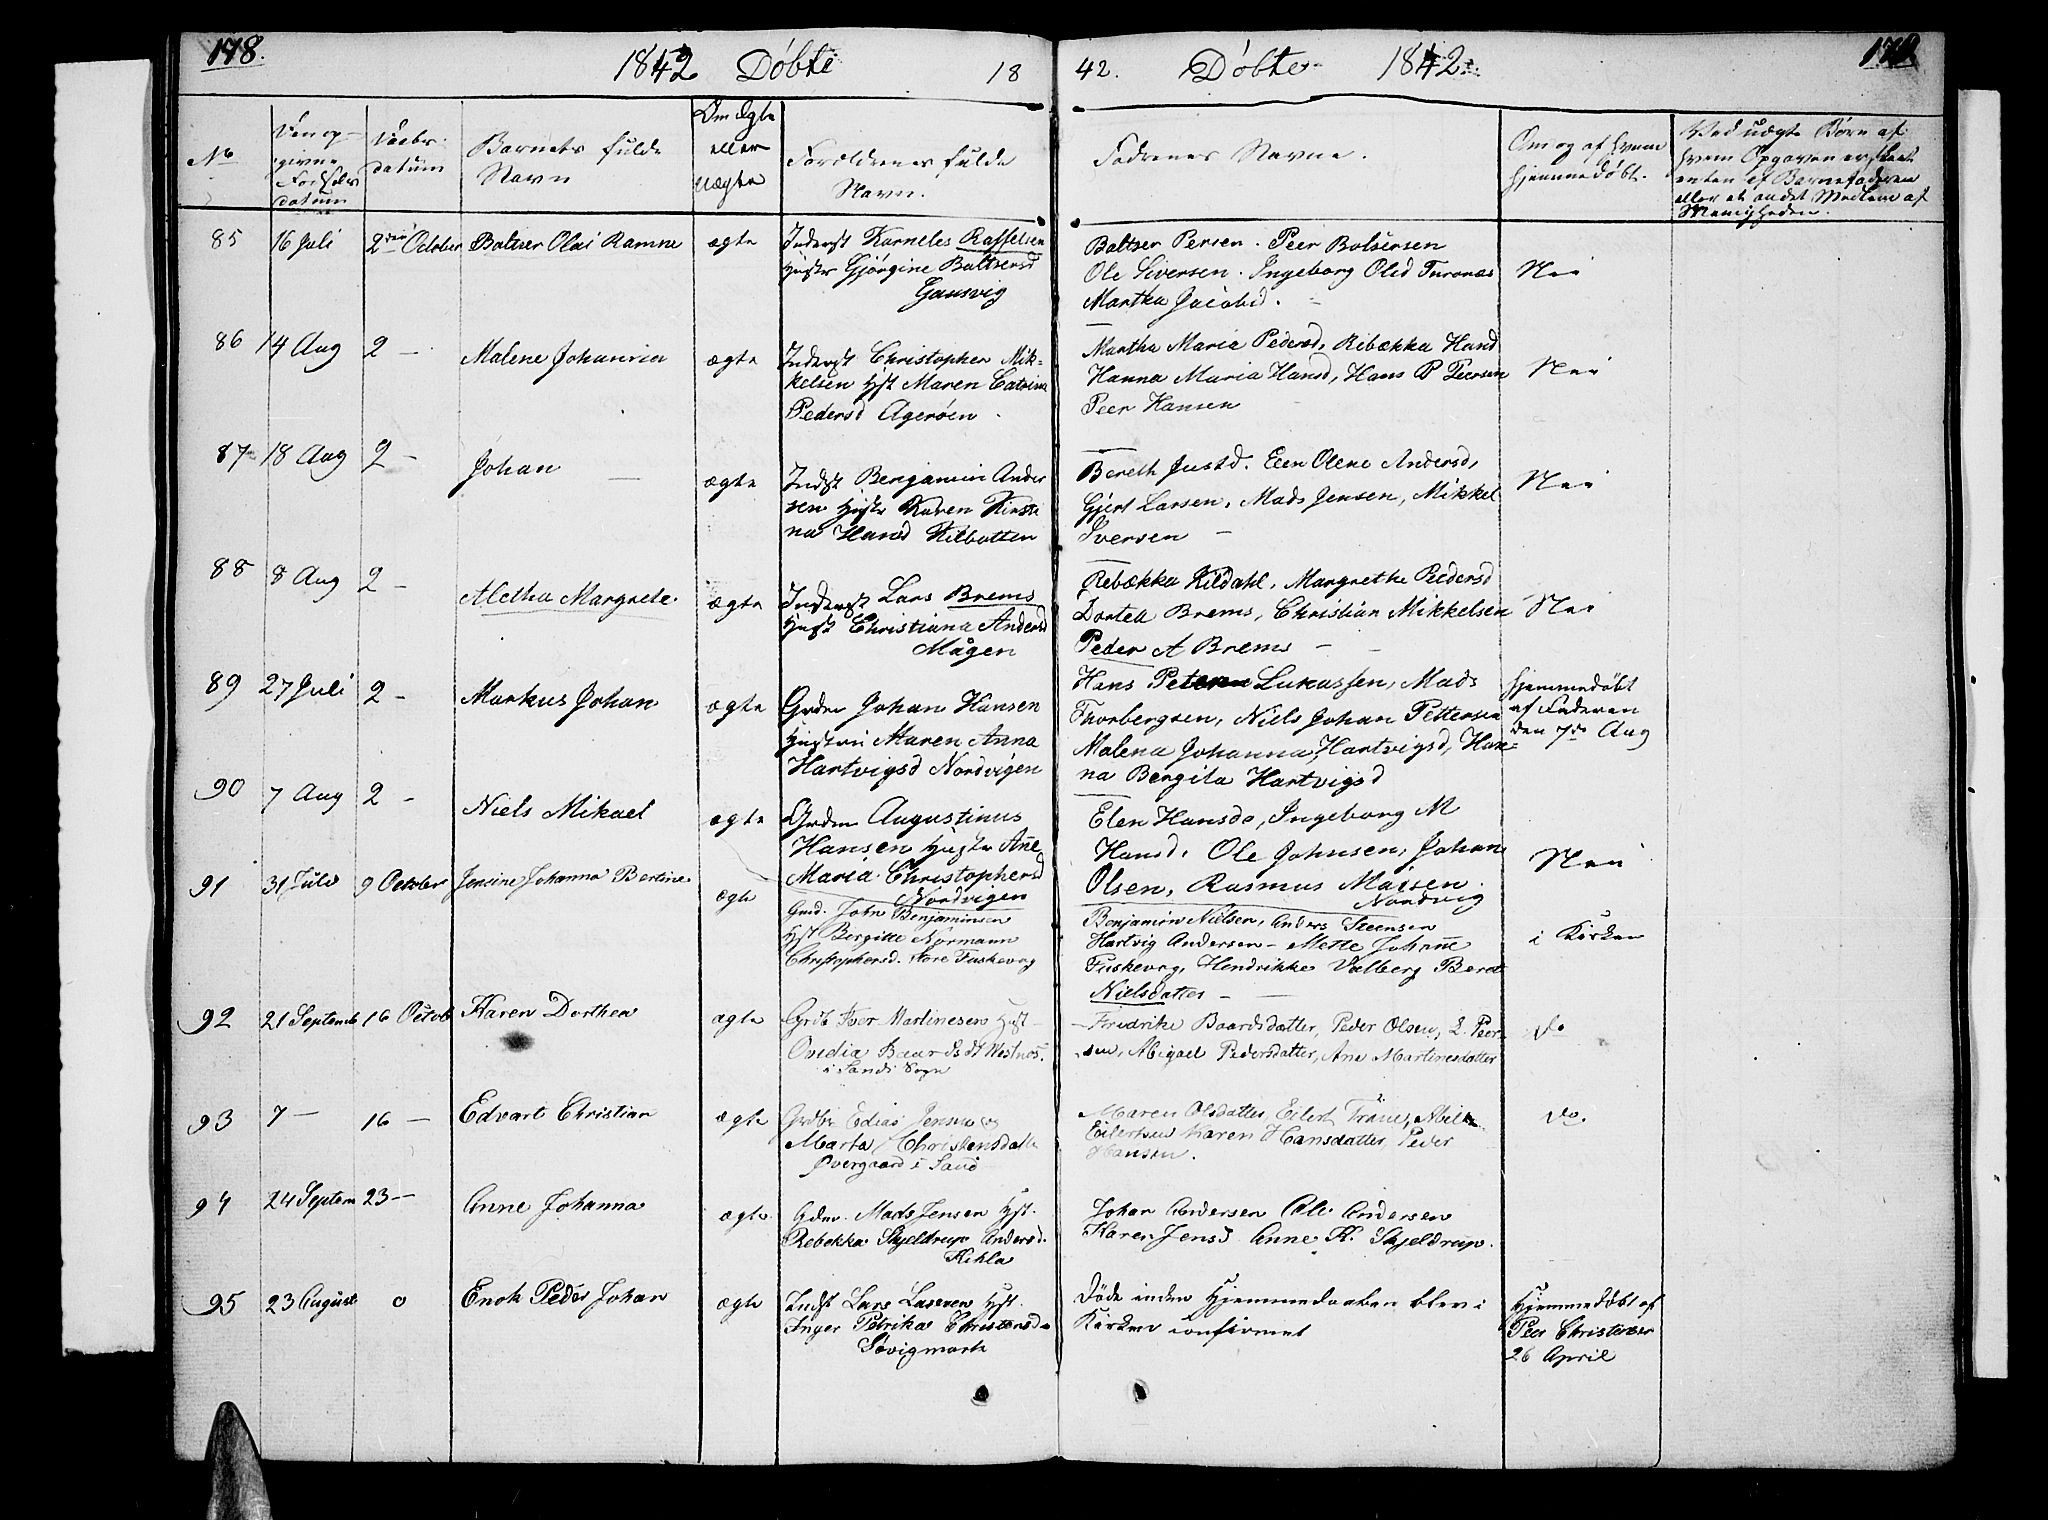 178.
1842 Döbte 18
42. Döbte 1842.
178
No
Den op-
givne
Födsels
datum
Daabs-
datum
Barnets fulde
Navn
Om ægte
eller
uægte
Forældrenes fulde
Navn.
Fadrenes Navne.
Om og af hvem
hjemmedöbt.
Ved uægte Börn af
hvem Opgaven er skeet
enten af Barnefaderen
eller et andet Medlem af
Menigheden.
85 16 Juli 2den October Baltser Olai Ramne ægte
Inderst Karneles Raffelsen
Hustr Gjörgine Baltsersd
Gausvig
Baltser Persen. Peer Balsersen
Ole Siversen. Ingeborg Olsd Turonæs
Martha Jacobsd.
Nei
86 14 Aug 2 - Malene Johanna ægte
Inderst Christopher Mik-
kelsen Hst Maren Catrina
Pedersd Ageröen
Martha Maria Pedersd, Ribækka Hansd
Hanna Maria Hansd, Hans P Peersen
Peer Hansen
Nei
87 18 Aug 2 - Johan ægte
Indst Benjamin Ander
sen Hustr Karen Kirsti
na Hansd Kilbotten
Bereth Justd. Elen Olene Andersd,
Gjert Larsen, Mads Jensen, Mikkel
Iversen
Nei
88 8 Aug 2 - Aletha Margrete. ægte
Inderst Lars Brems
Hustr Christiana Andersd
Mågen
Rebækka Kildahl, Margrethe Pedersd
Dortea Brems, Christian Mikkelsen
Peder A Brems
Nei
89 27 Juli 2 - Markus Johan ægte
Grden Johan Hansen
Hustru Maren Anna
Hartvigsd Nordvigen
Hans Petersen Lukassen, Mads
Thorbergsen, Niels Johan Pettersen
Malena Johanna Hartvigsd, Han-
na Bergita Hartvigsd
Hjemmedöbt
af Faderen
den 7de Aug
90 7 Aug 2 - Niels Mikael ægte
Grden Augustinus
Hansen Hustr Ane
Maria Christophersd
Nordvigen
Elen Hansda, Ingeborg M
Hansd, Ole Johnsen, Johan
Olsen, Rasmus Maisen
Nordvig
Nei
91 31 Juli 9 October Jensine Johanna Bertine ægte
Gmd. John Benjaminsen
Hst Bergitte Normann
Christophersd. Store Fuskevog
Benjamin Nielsen, Anders Steensen
Hartvig Andersen - Mette Johanne
Fuskevog, Hendrikke Valberg Beret
Nielsdatter
i Kirken
92 21 Septemb 16 Octob Karen Dorthea ægte
Grdb Iver Martinesen Hust
Ovedia Baardsdt Westnes.
i Sands Sogn
Fredrike Baardsdatter, Peder Olsen, L. Peer-
sen, Abigael Pedersdatter, Ane Martinesdatter
Do
93 7 - 16 - Edvart Christian ægte
Grdbr Edias Jensen og
Marta Christensdatt
Övergaard i Sand
Maren Olsdatter, Eilert Träne, Abel
Eilertsen Karen Hansdatter Peder
Hansen.
Do.
94 24 Septem 23 - Anne Johanna ægte
Gdm. Mads Jensen Hst.
Rebekka Skjeldrup Andersd.
Kihla
Johan Andersen Ole Andersen
Karen Jensd Anne K. Skjeldrup.
95 23 August 0 Enok Peder Johan ægte
Indst Lars Larsen Hst.
Inger Petrika Christensda
Sövigmark
Döde inden Hjemmedaaben blev i
Kirken confirmet
Hjemmedöbt af
Peer Christensen
26 April